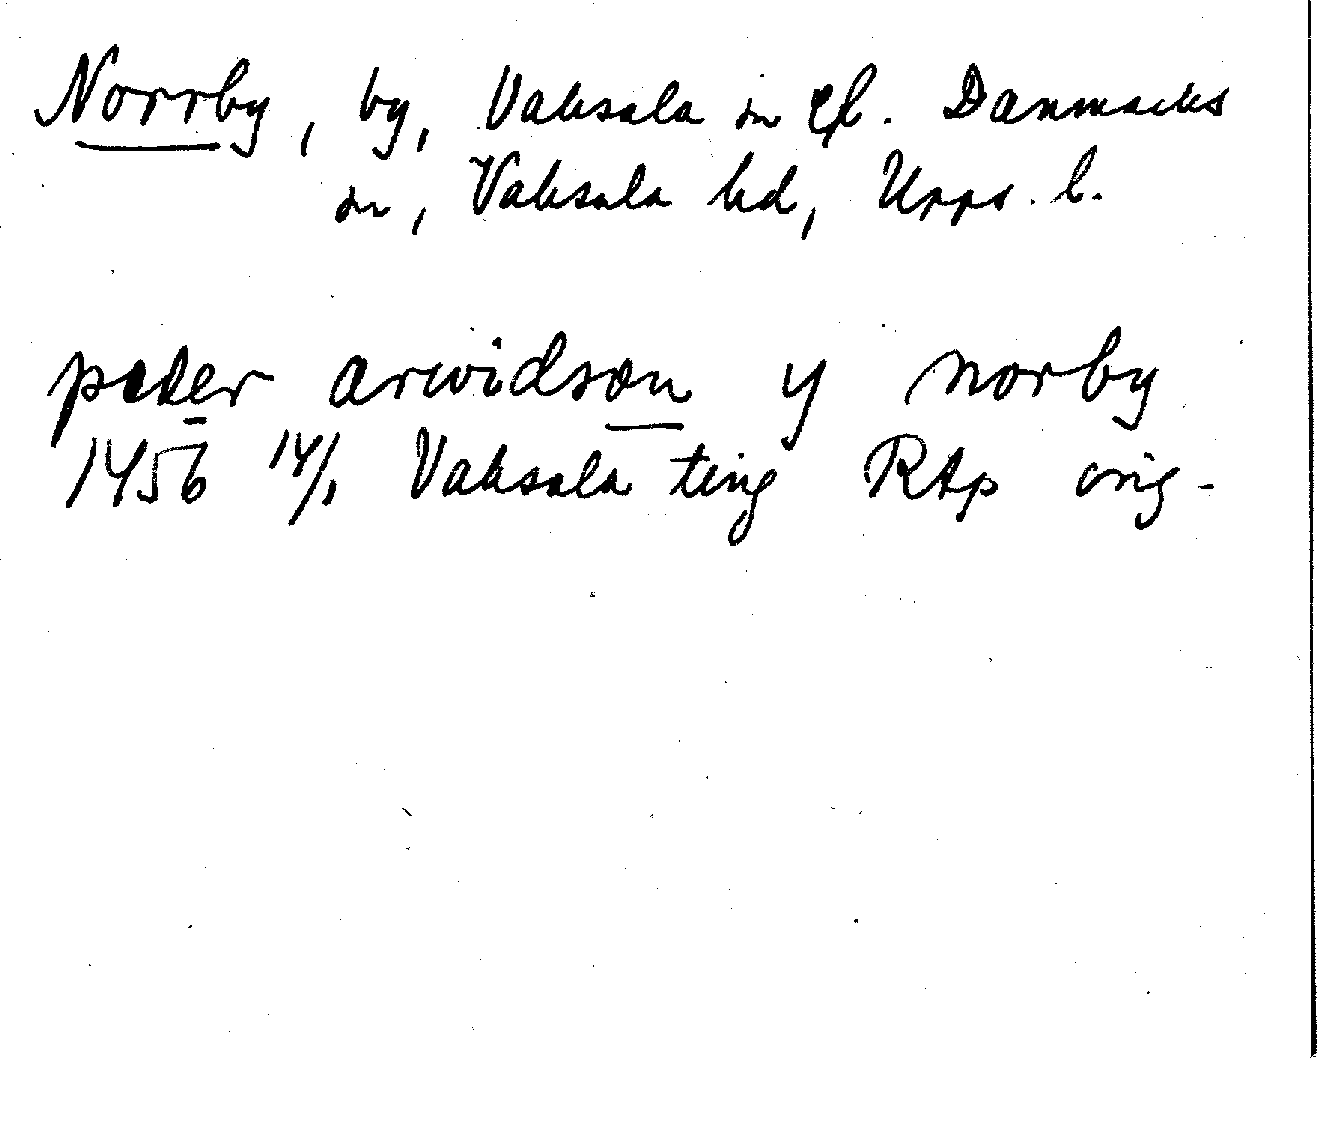 Norrby, by, Vaksala sn el. Danmarks
sn, Vaksala hd, Upps. l.
peder arwidson y norby
1456 14/1 Vaksala ting RAp orig.